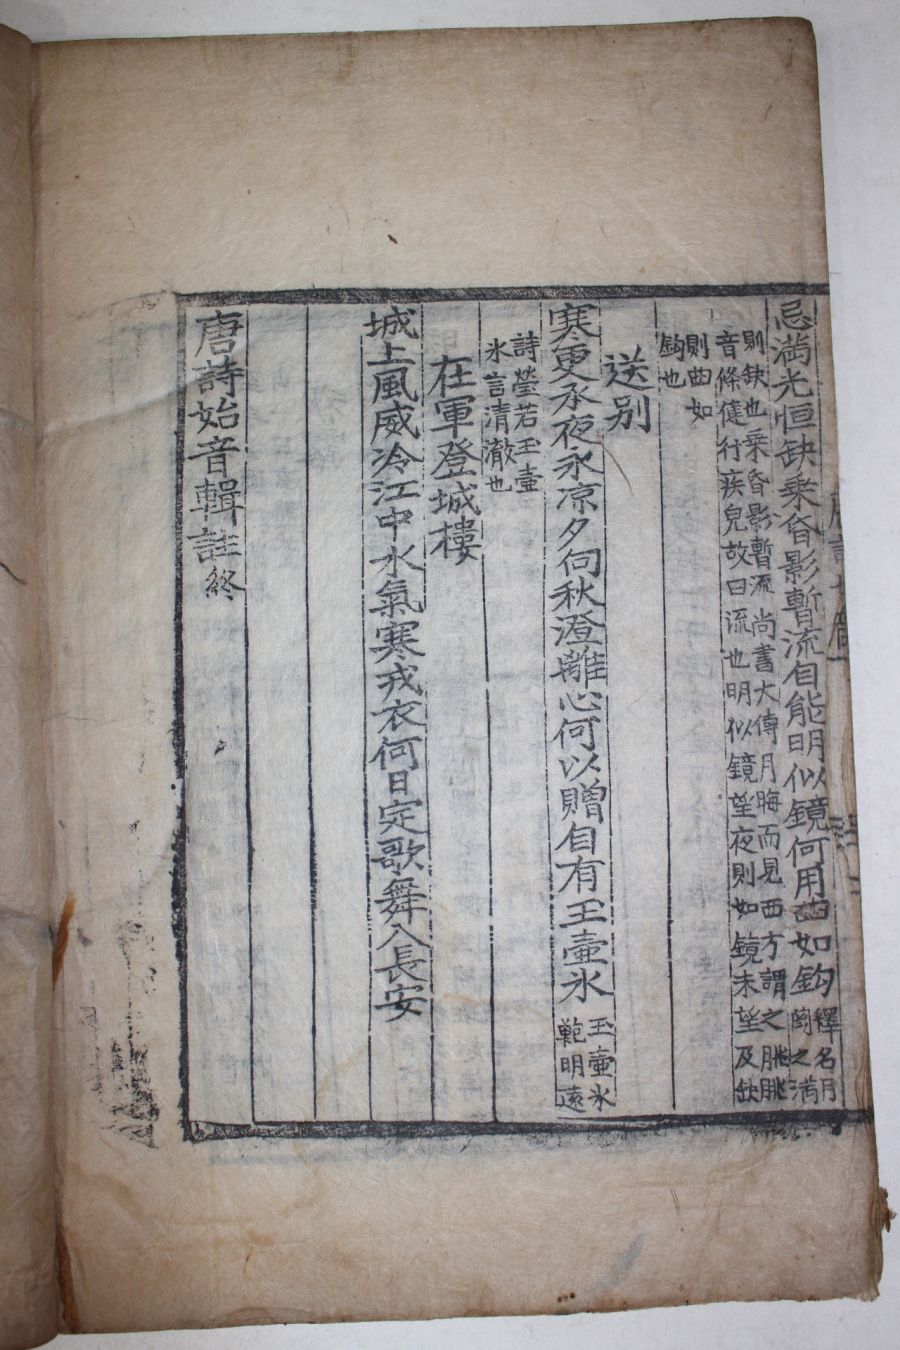 忌滿光恒缺乘昏影暫流自能明似鏡何用曲如鈎釋名月
闕之滿
則缺也乘昏影暫流尚書大傳月晦而見西方謂之朓朓
音條健行疾皃故曰流也明似鏡望夜則如鏡未望及缺
則曲如
鈎也
送别
寒更永夜永凉夕向秋澄離心何以贈自有玉壷氷玉壷氷
範明遠
詩瑩若玉壷
氷言清澈也
在軍登城樓
城上風威冷江中水氣寒戎衣何日定歌舞入長安
唐詩始音輯註終